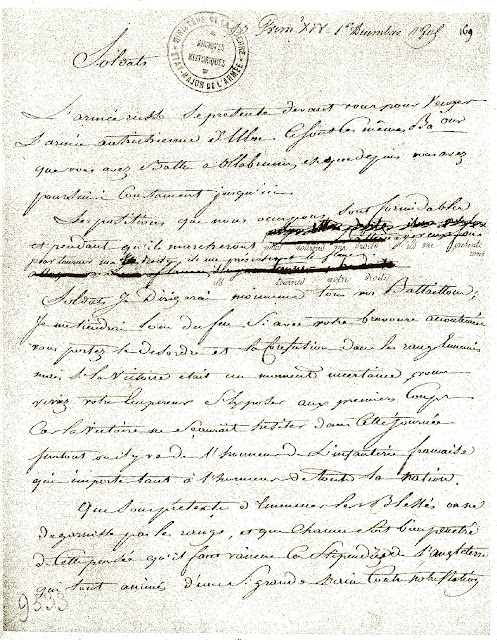 Frim.re XIV 1er Decembre 1805 169
MINISTÈRE DE LA GUERRE
ARCHIVES
HISTORIQUES
ETAT-MAJOR DE L'ARMÉE
Soldats
L'armée russe se presente devant vous pour venger
l'armée autrichienne d'Ulm. Ce sont ces mêmes Bā ons
que vous avez Battu a hollabrunn, et que depuis vous avez
poursuivi Constament jusqu'ici.
Les positions que nous occupons sont formidable
et pendant qu'il marcheront
pour tourner ma droite, ils me présenteront le flanc
Soldats Je dirigerai moi meme tous vos Battaillons,
Je me tiendrai loin du feu Si avec votre bravoure accoutumée
vous portez le desordre et la Confusion dans les rangs Ennemis
mais Si la Victoire etait un moment incertaine, vous
verrez votre Empereur S'Exposer aux premiers Coups
Car la victoire ne Sçauroit hésiter dans Cette Journée
surtout ou il y va de l'honneur de L'infanterie française
qui importe tant à l'honneur de toute la nation.
Que Sous pretexte d'Emmener les Blessés on ne
degarnisse pas les rangs, et que chacun Soit bien penetré
de Cette pensée qu'il faut vaincre Ces Stipendiés de l'angleterre
qui sont animés d'une Si grande haine Contre notre Nation